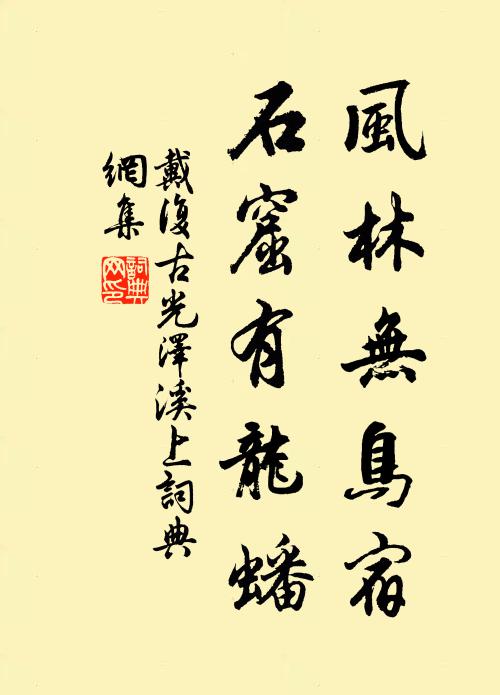 風林無鳥宿
石窟有龍蟠
戴復古光澤溪上詞典
網集
詞典
网印